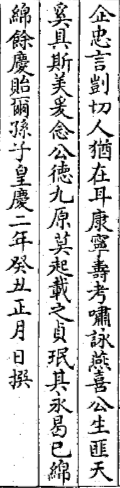 企忠言剴切人猶在耳康寧壽考嘯詠燕喜公生匪夭
奚具斯美爰念公德九原莫起載之貞珉其永曷已綿
綿餘慶貽爾孫子皇慶二年癸丑正月日撰